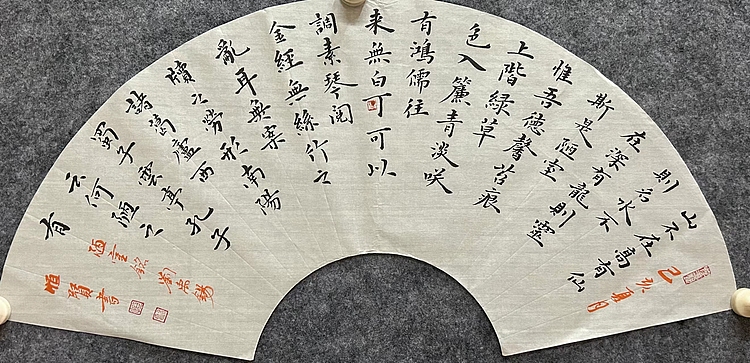 山不在高有仙
則名水不
在深有龍則靈
斯是陋室
惟吾德馨苔痕
上階緑草
色入簾青淡咲
有鴻儒往
来無白丁可以
調素琴閲
金經無絲竹之
亂耳無案
牘之勞形南陽
諸葛廬西
蜀子雲亭孔子
云何陋之
有
己亥夏月
陋室銘 劉禹錫
恒賢書